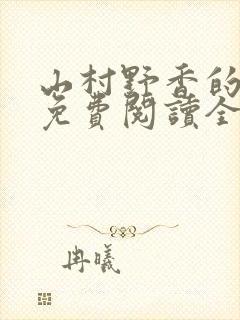 山村野香的
免費閱讀全
冉曦